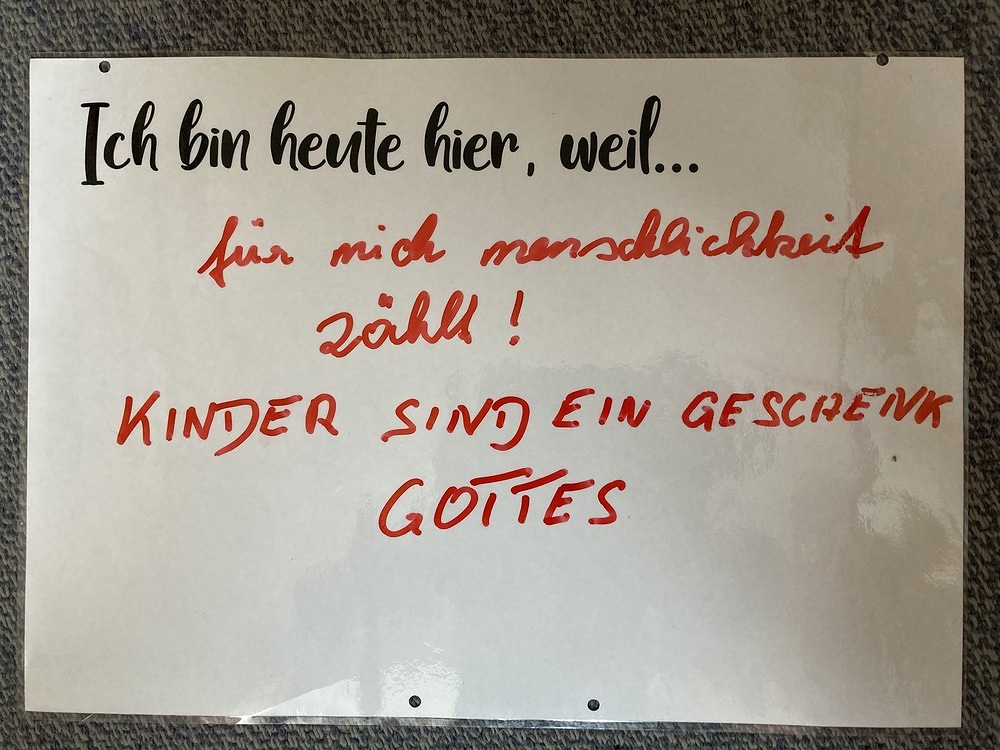 Ich bin heute hier, weil...
für mich menschlichkeit
zählt!
KINDER SIND EIN GESCHENK
GOTTES